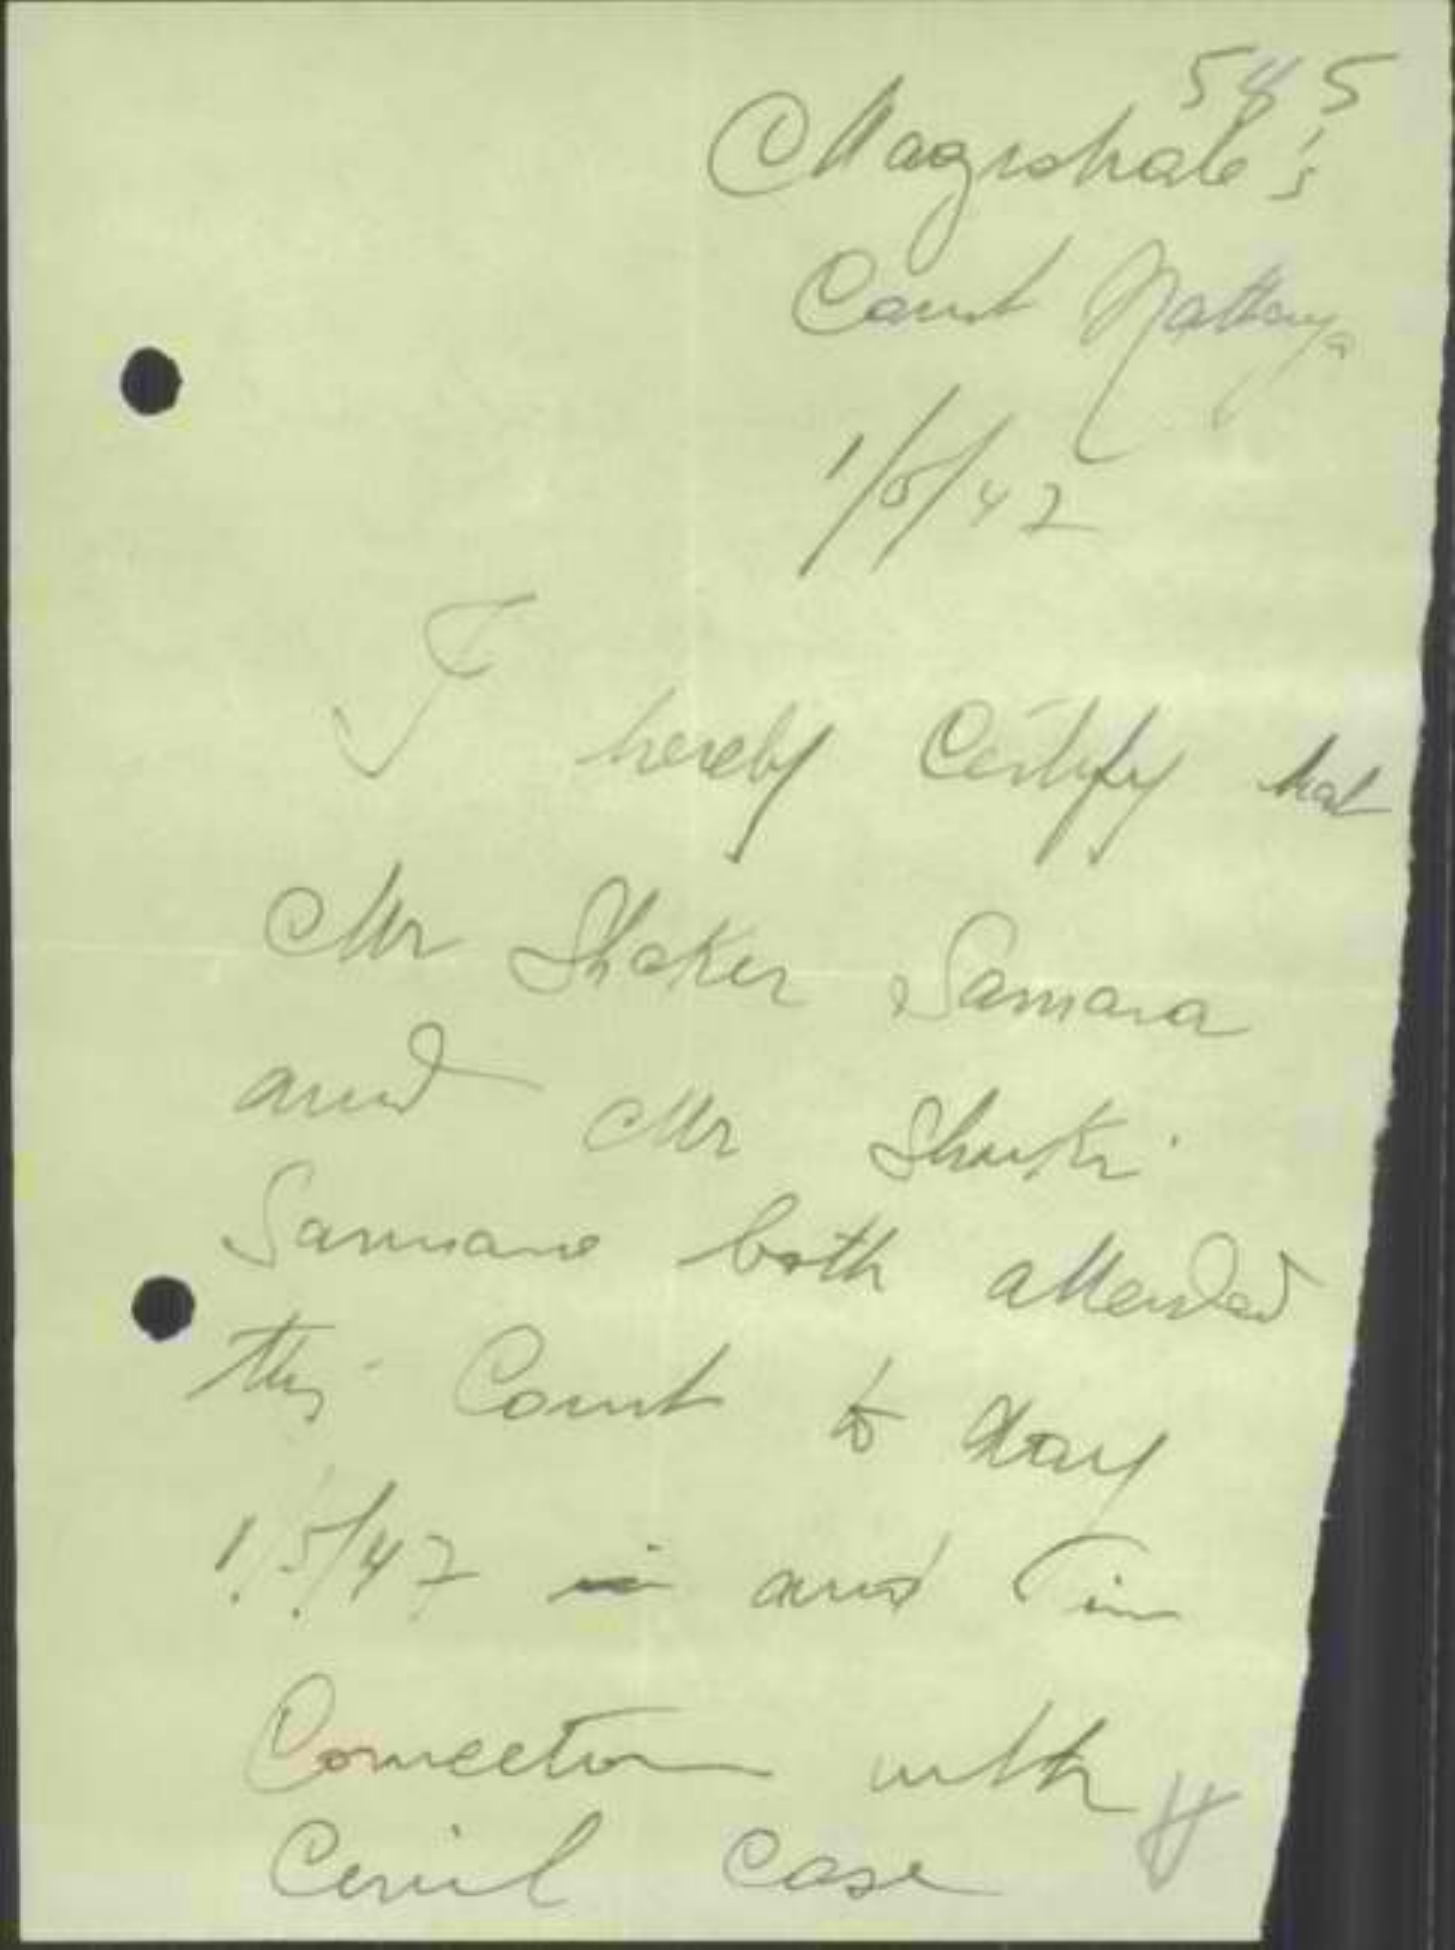 545
Magistrate's
Court Nathanya
1/5/47
I hereby Certify that
Mr Shaker Samara
and Mr Shukri
Samara both attended
this Court to day
1/5/47 in and in
Connection with
Civil Case